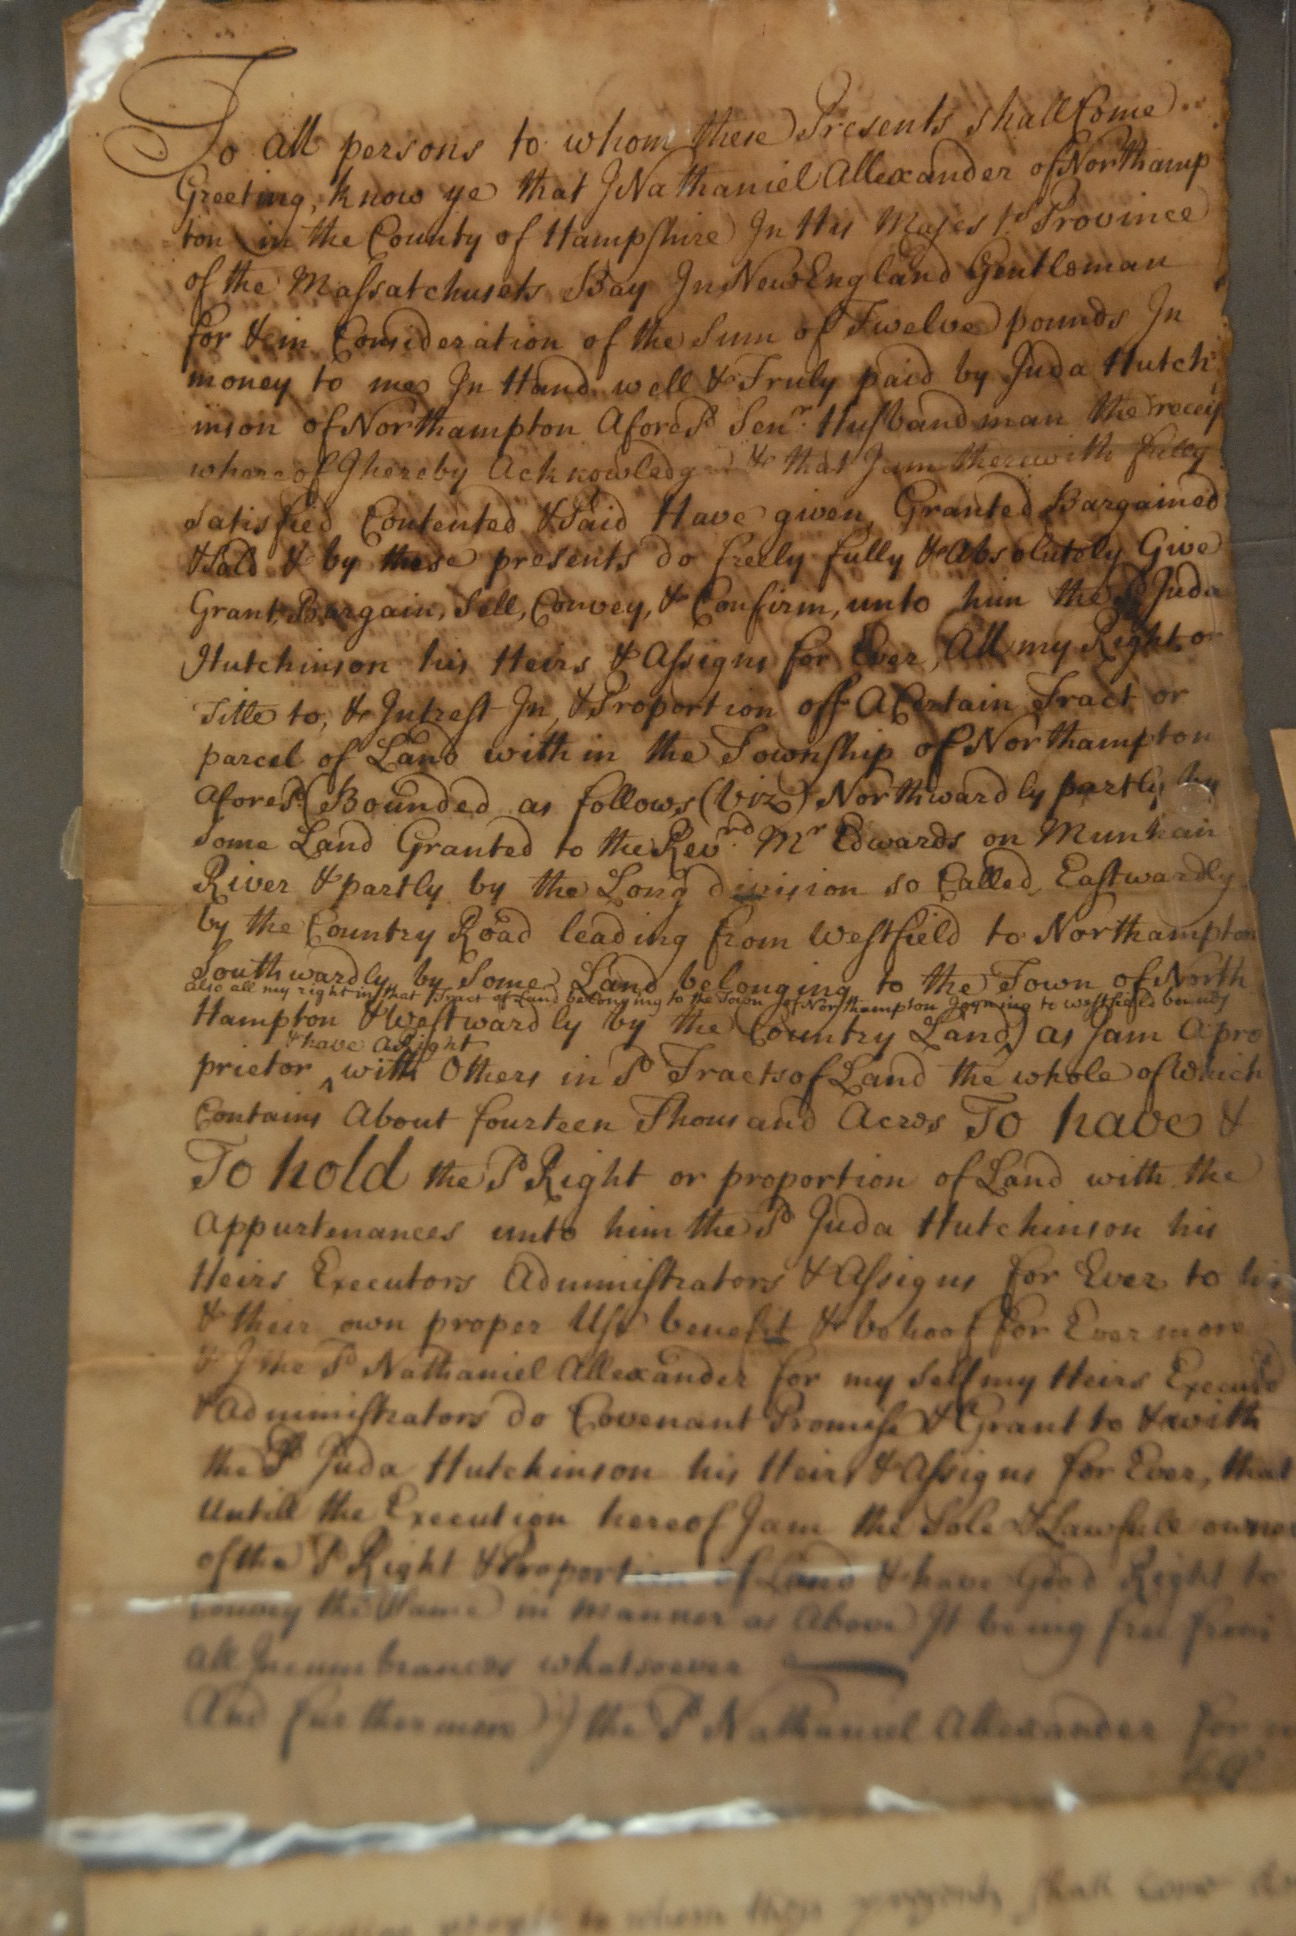 To all persons to whom these Presents shall Come
Greeting, know ye that I Nathaniel Allexander of Northamp
ton in the County of Hampshire In His Majesties Province
of the Massatchusets Bay In New England Gentleman
for & in Consideration of the Sum of Twelve pounds In
money to me In Hand well & Truly paid by Juda Hutch
inson of Northampton Afores.d Sen.r Husbandman the receip
whereof I hereby Acknowledg & that I am therewith fully
Satisfied Contented & Paid Have given, Granted Bargained
& Sold & by these presents do freely fully & Absolutely Give
Grant, Bargain, Sell, Convey, & Confirm, unto him the Sd Juda
Hutchinson his Heirs & Assigns for Ever, All my Right or
Title to, & Intrest In, & Proportion off A Certain Tract or
parcel of Land within the Township of Northampton
afores.d (Bounded as follows (viz) Northwardly partly by
Some Land Granted to the Rev.rd Mr Edwards on Munhan
River & partly by the Long division so Called, Eastwardly
by the Country Road leading from Westfield to Northampton
Southwardly by Some Land belonging to the Town of North
also all my right in that Tract of Land belonging to the Town of Northampton Joyning to westfield bounds
Hampton & Westwardly by the Country Land) as I am A pro
& have A Right
prietor with Others in Sd Tracts of Land the whole of Which
Contains About fourteen Thousand Acres To have &
To hold the Sd Right or proportion of Land with the
Appurtenances unto him the Sd Juda Hutchinson his
Heirs Executors Administrators & Assigns for Ever to his
& their own proper Use benefit & behoof for Ever more
& I the Sd Nathaniel Allexander for my Self my Heirs
& Administrators do Covenant Promise & Grant to & with
the Sd Juda Hutchinson his Heirs & Assigns for Ever, that
Untill the Execution hereof I am the Sole & Lawfull owner
of the Sd Right & Proportion of Land & have Good Right to
Convey the Same in manner as Above It being free from
all Incumbrances whatsoever
And furthermore I the Sd Nathaniel Allexander for
people to whom these presents shall Come